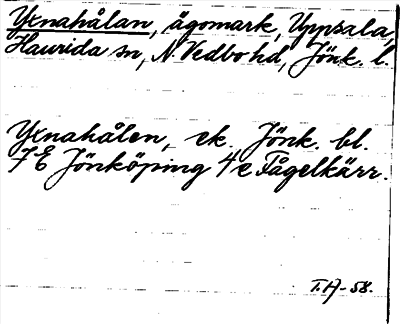 Yxnahålan, ägomark, Uppsala,
Haurida sn, N. Vedbo hd, Jönk. l.
Yxnahålen, ek. Jönk. bl.
7 E Jönköping 4 e Fågelkärr.
T.A-58.